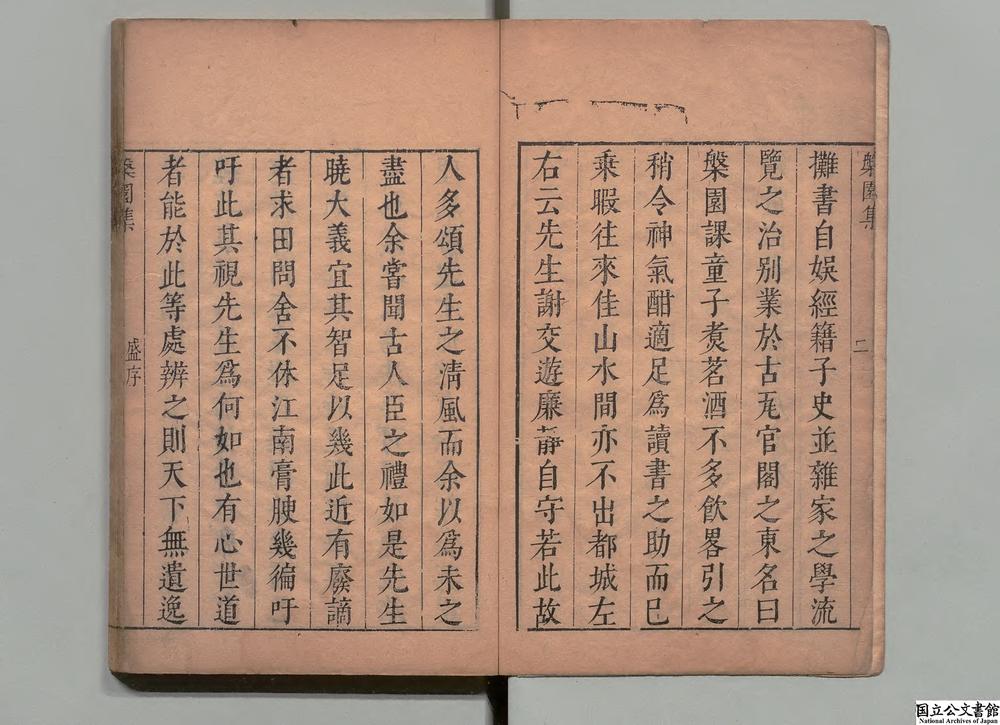 槃園集
二
攤書自娛經籍子史並雜家之學流
覽之治别業於古瓦官閣之東名曰
槃園課童子煑茗酒不多飲畧引之
稍令神氣酣適足爲讀書之助而已
乘暇往來佳山水間亦不出都城左
右云先生謝交遊廉靜自守若此故
人多頌先生之淸風而余以爲未之
盡也余嘗聞古人臣之禮如是先生
曉大義宜其智足以幾此近有廢謫
者求田問舍不休江南膏腴幾徧吁
吁此其視先生爲何如也有心世道
者能於此等處辨之則天下無遺逸
槃園集
盛序
国立公文書館
National Archives of Japan